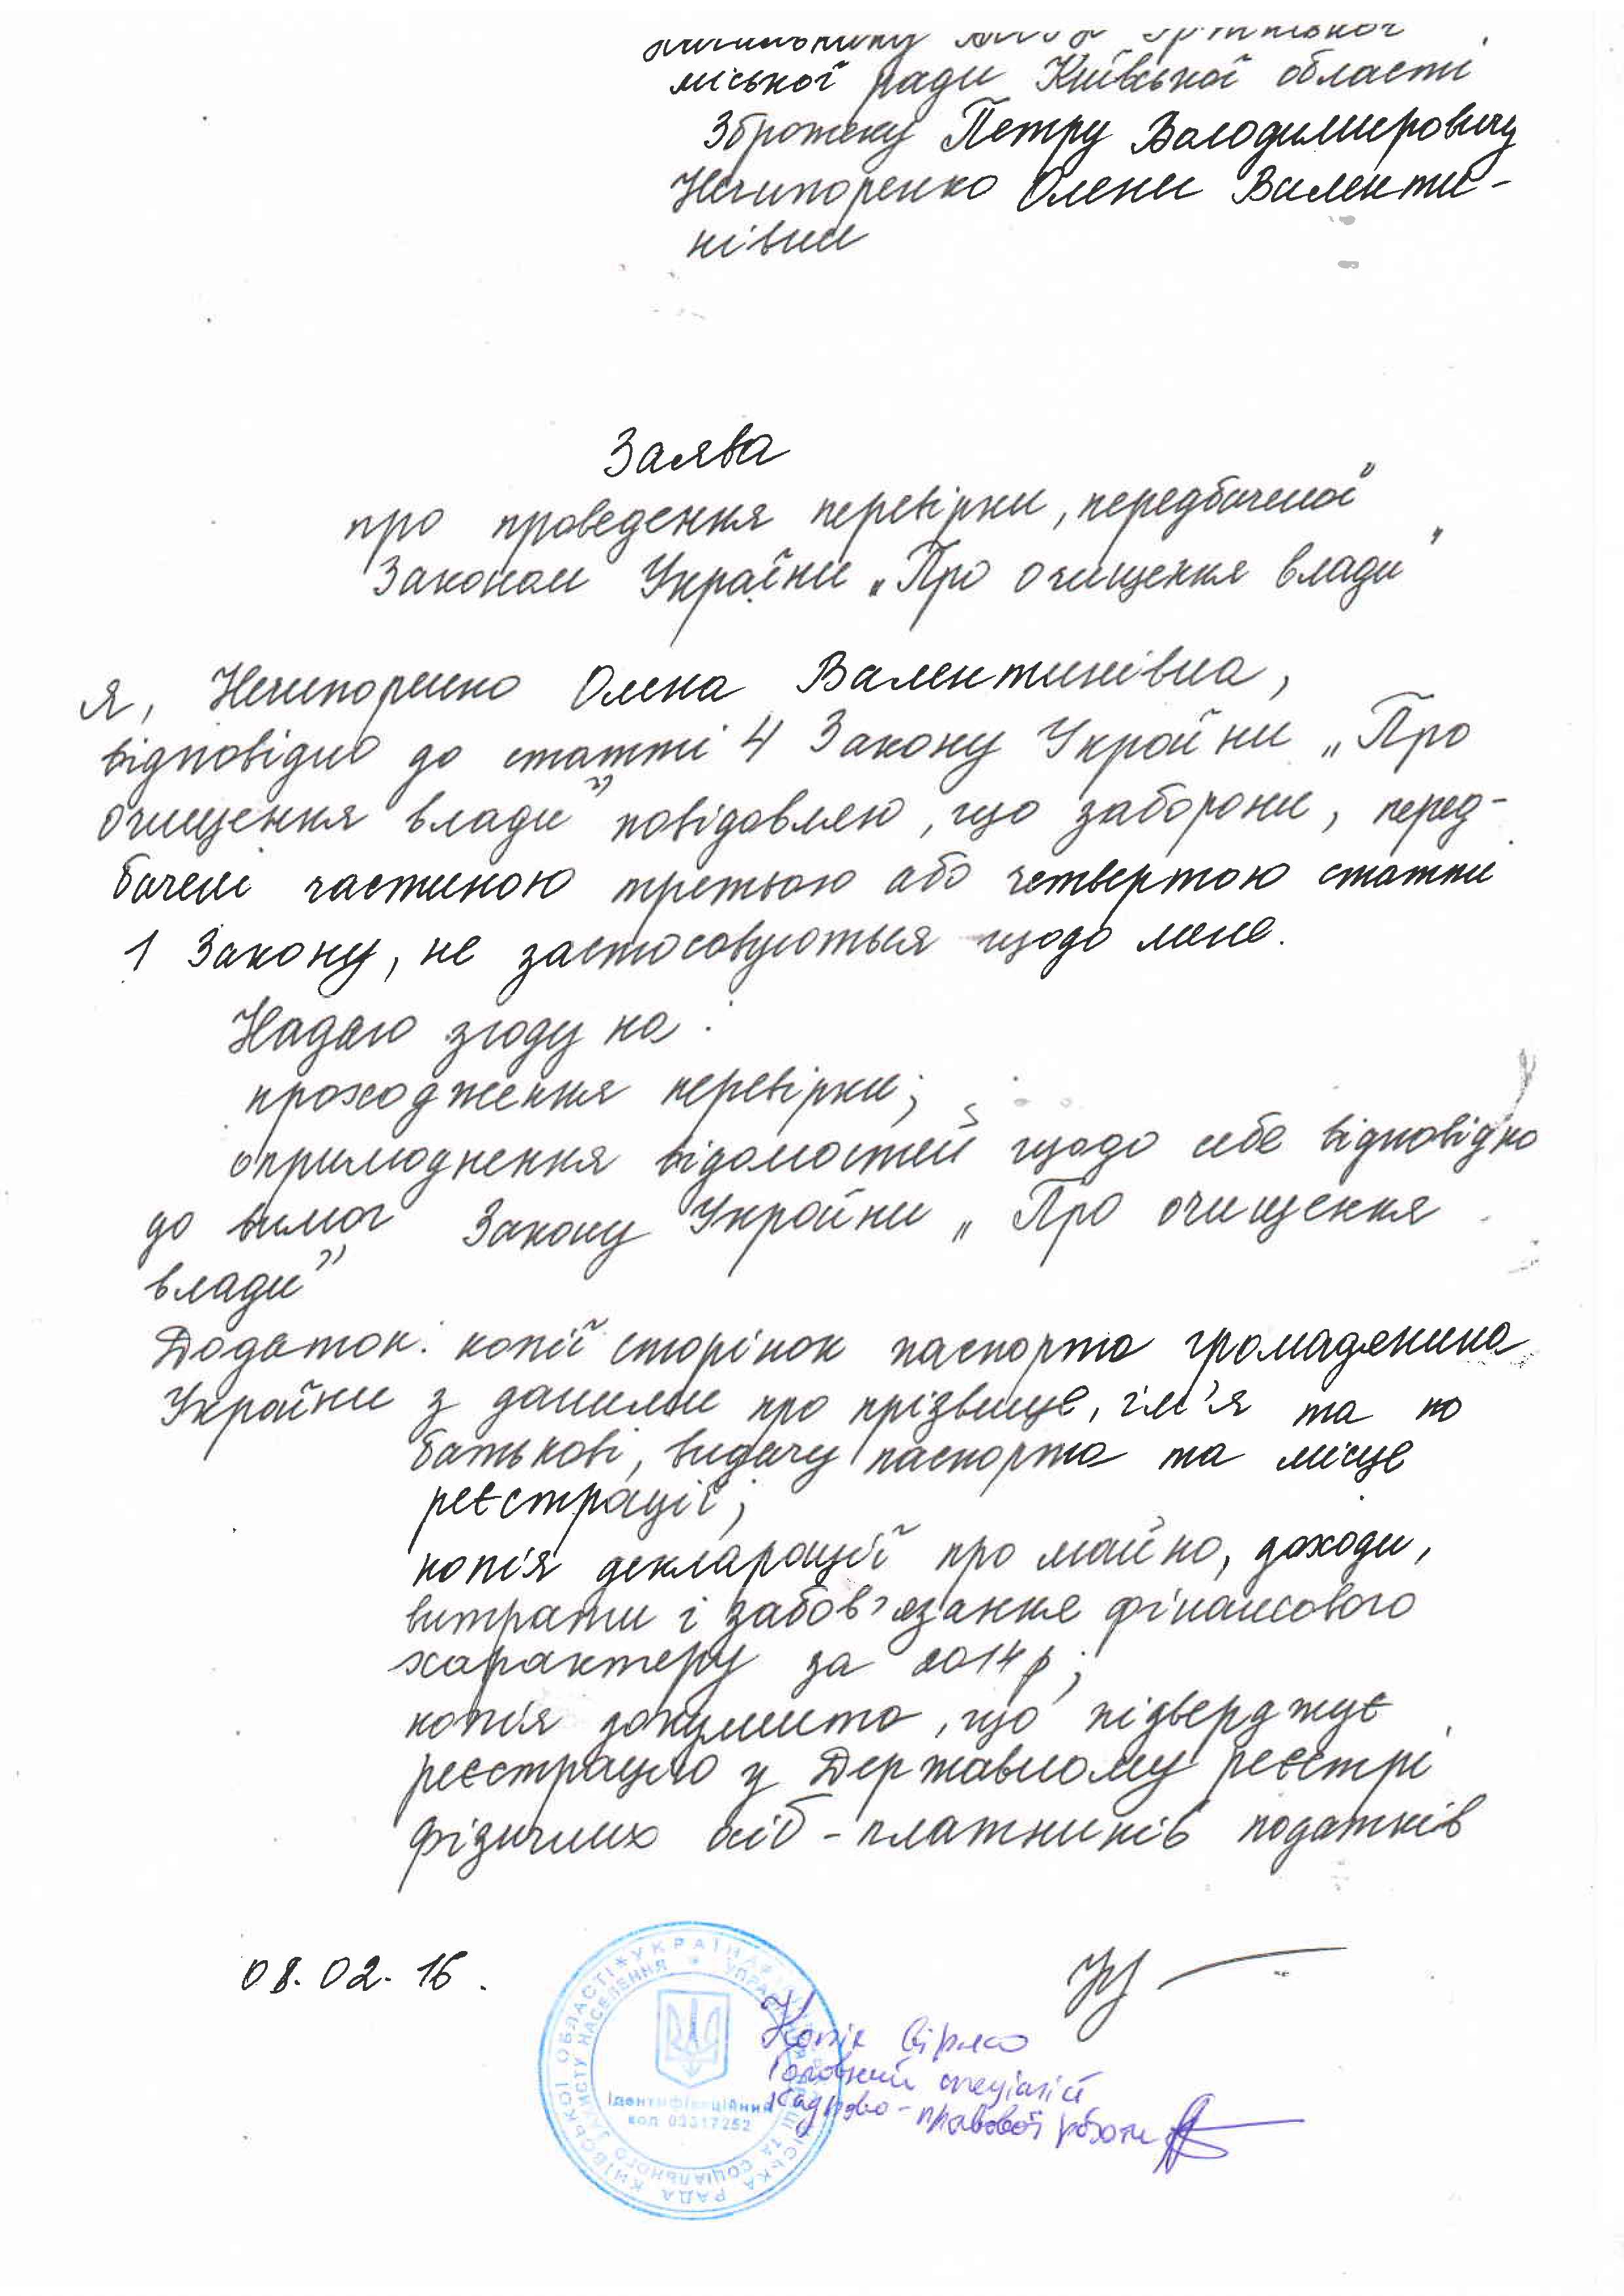 міської ради Київської області
Збротеку Петру Володимировичу
Нечипоренко Олени Валенти-
нівни
Заява
про проведення перевірки, передбаченої
Законом України „Про очищення влади"
я, Нечипоренко Олена Валентинівна,
відповідно до статті 4 Закону України „Про
очищення влади" повідомляю, що заборони, перед-
бачені частиною третьою або четвертою статти
1 Закону, не застосовуються щодо мене.
Надаю згоду на:
проходження перевірки;
оприлюднення відомостей щодо себе відповідно
до вимог Закону України „Про очищення
влади"
Додаток: копії сторінок паспорта громадянина
України з даними про прізвище, ім'я та по
батькові, видачу паспорта та місце
реєстрації;
копія декларації про майно, доходи,
витрати і забов'язання фінансового
характеру за 2014р;
копія документа, що підверджує
реєстрацію у Державному реєстрі
фізичних осіб-платників податків
08.02.16.
УКРАЇНА
МІСЬКА РАДА КИЇВСЬКОЇ ОБЛАСТІ
ТА СОЦІАЛЬНОГО ЗАХИСТУ НАСЕЛЕННЯ
Ідентифікаційний
код 03317252
Копія вірна
Головний спеціаліст
кадрово-правової роботи